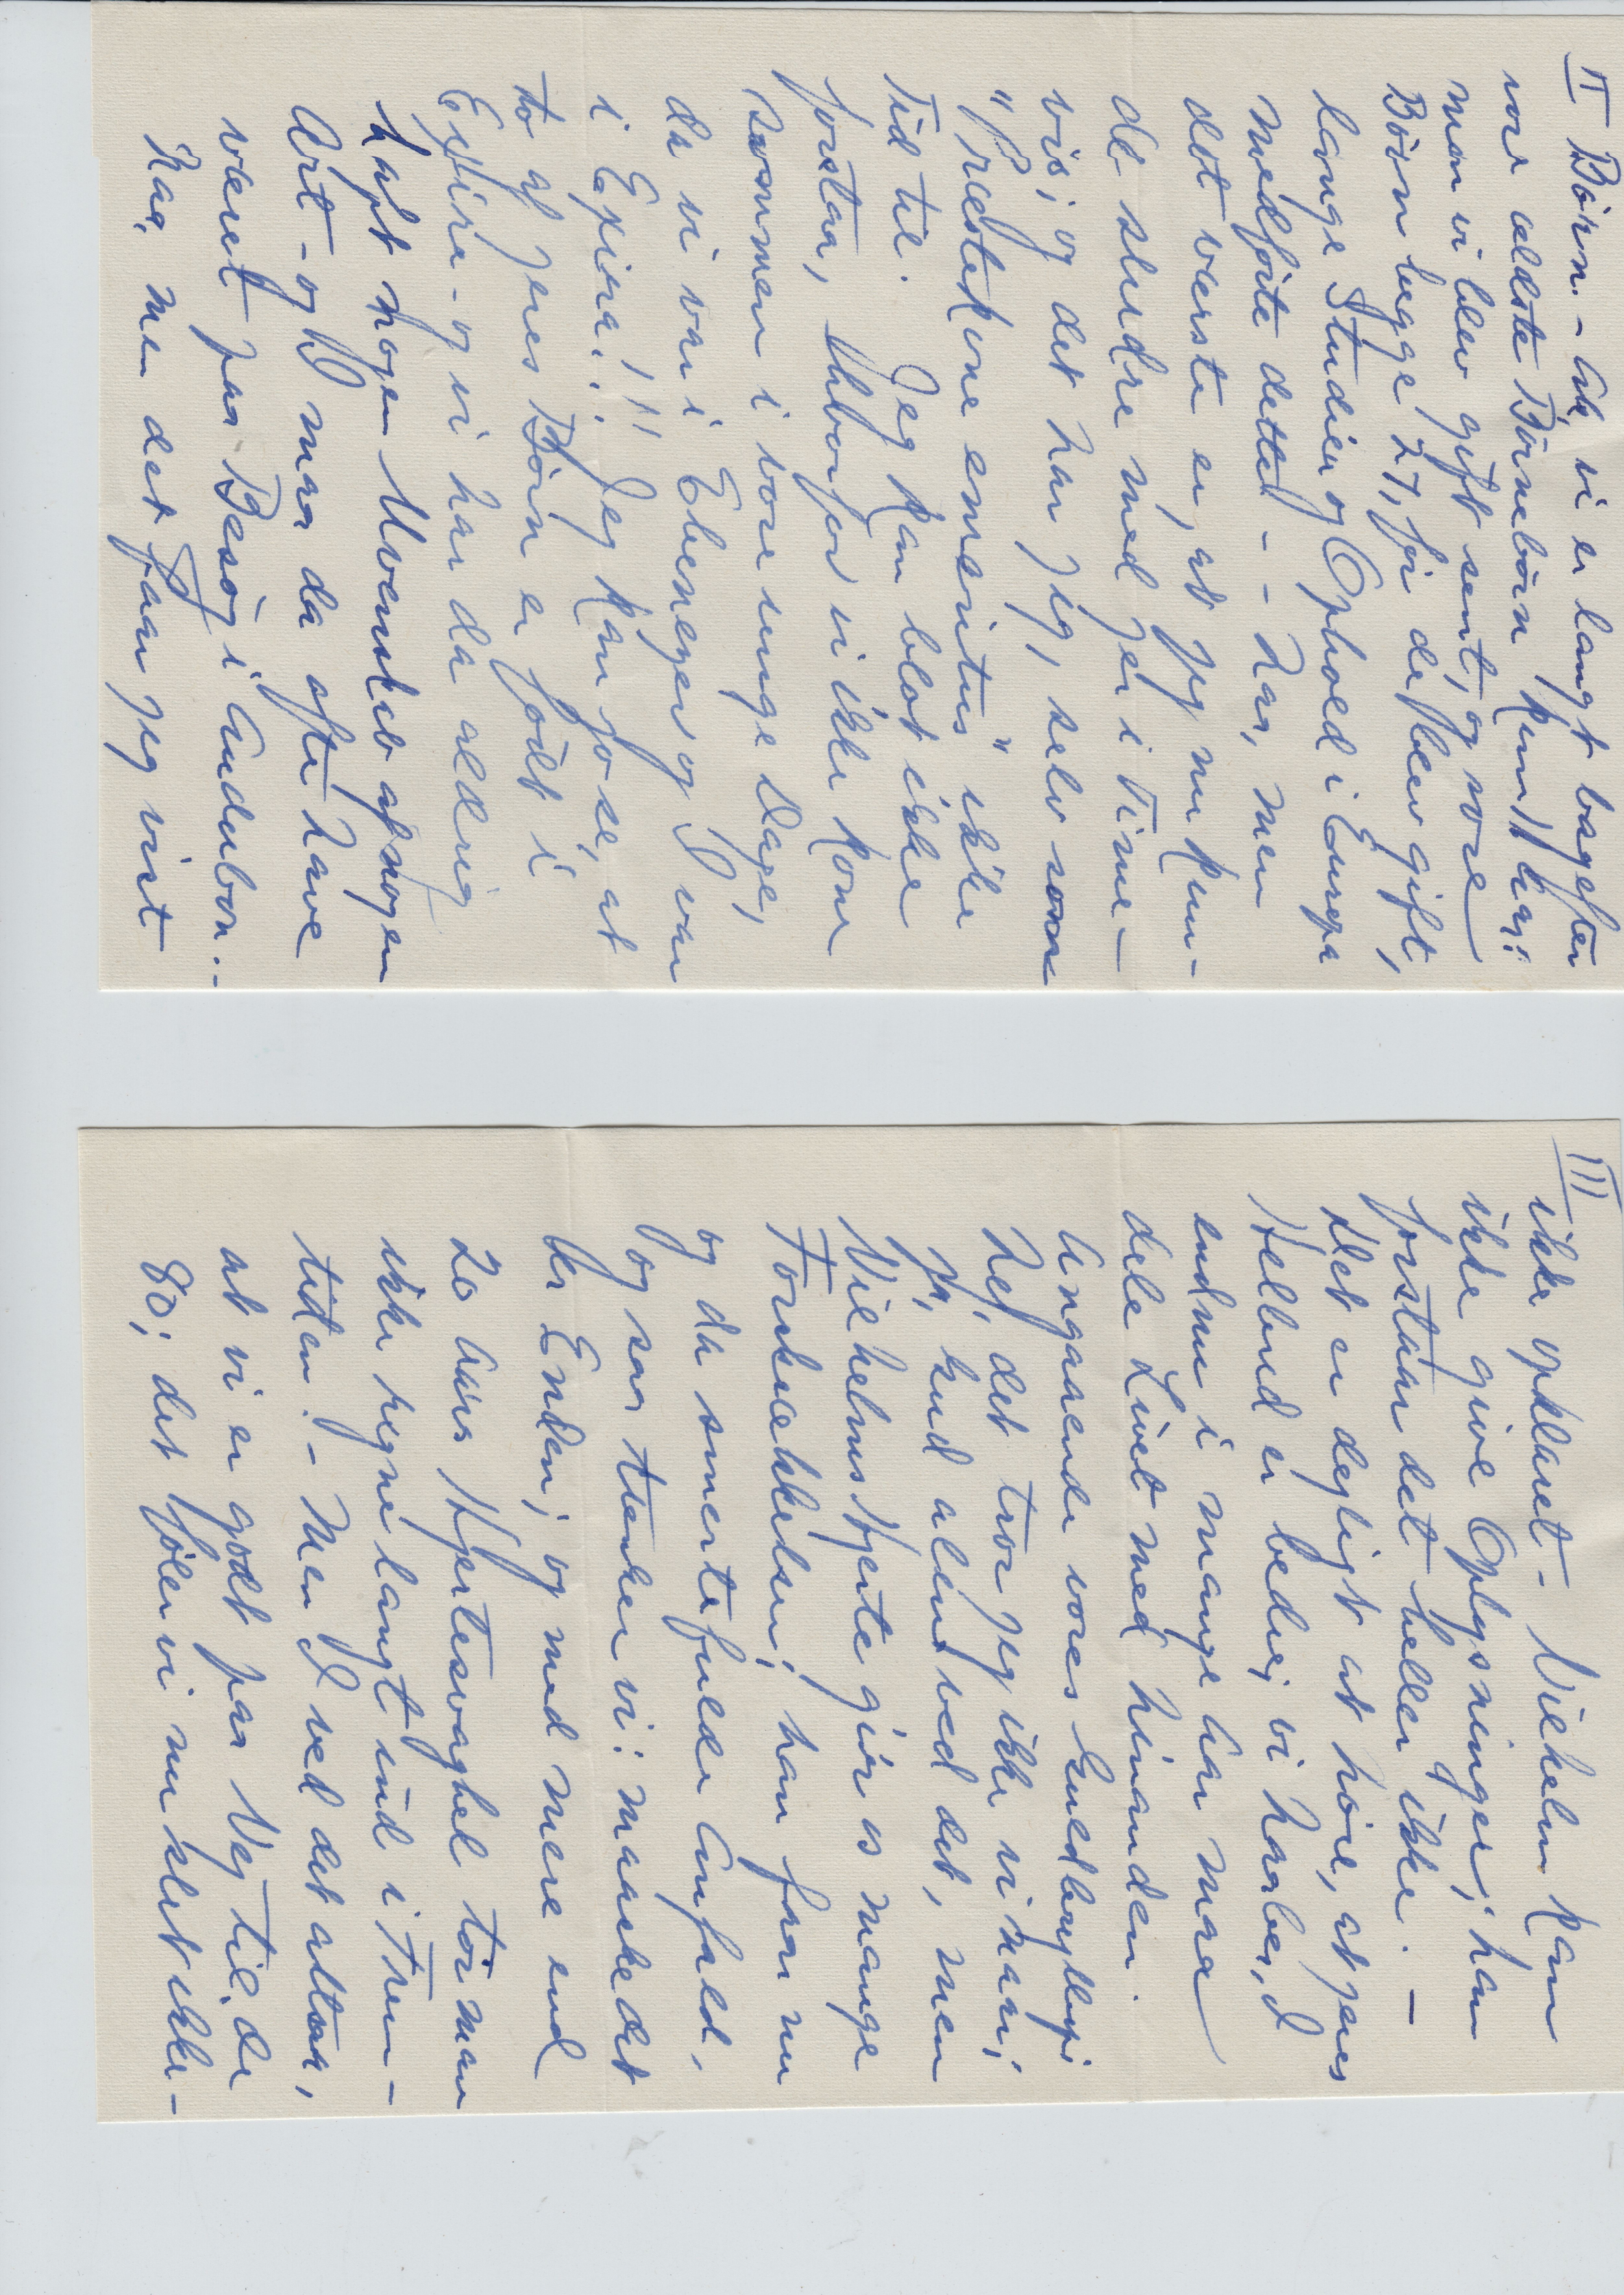 II Börn. - Ak, vi er langt bagefter
vore ældste Börnebörn kun 11 Aar;
men vi blev gift sent, og vore
Börn begge 27, för de blev gift,
lange Studier og Ophold i Europa
medförte dette! - - Naa, men
det værste er, at jeg nu kun-
de sludre med jer i Time-
vis; og det har jeg, selv som
"Præstekone emeritus" ikke
Tid til. Jeg kan blot ikke
forstaa, hvorfor vi ikke kom
sammen i vore unge Dage,
da vi var i Ebenezer og I var
i Exira!!! Jeg kan jo se, at
to af jeres Börn er födt i
Exira - og vi har da aldrig
haft nogen Uvenskab af nogen
Art - og I maa da ofte have
været paa Besög i Audubon. -
Naa, men det faar jeg vist
III
ikke opklaret - Vilhelm kan
ikke give Oplysninger; han
forstaar det heller ikke. -
Det er dejligt at höre, at jeres
Helbred er bedre; vi haaber, I
endnu i mange Aar maa
dele Livet med hinanden.
Angaaende vores Guldbryllup;
Nej, det tror jeg ikke vi naar;
ja, Gud alene ved det, men
Vilhelms Hjerte gör os mange
Forskrækkelser; han faar nu
og da smertefulde Anfald,
og saa tænker vi: maaske det
er Enden; og med mere end
20 Aars Hjertesvaghed tör man
ikke regne langt ud i Frem-
tiden. - Men I ved det altsaa,
at vi er godt paa Vej til de
80; det föler vi nu slet ikke -